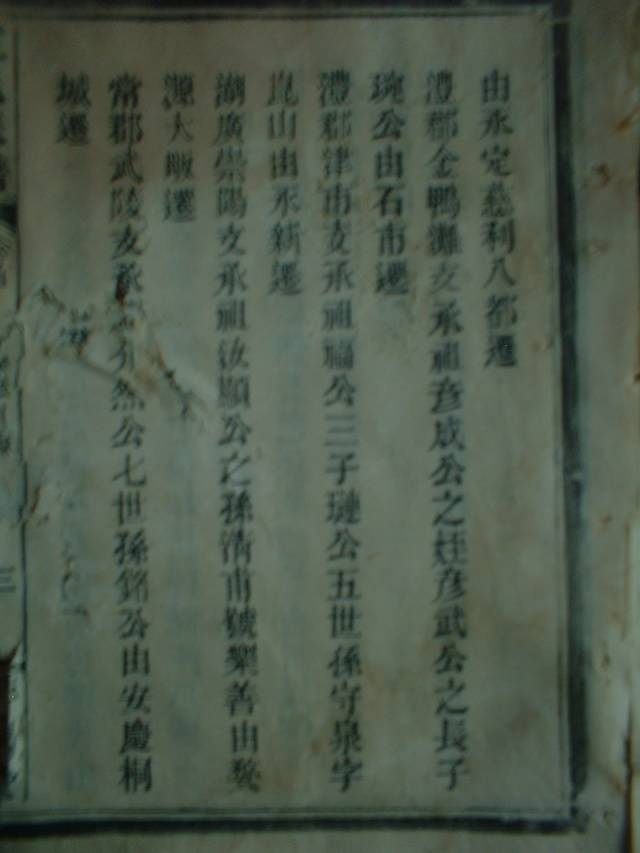 由永定慈利八都遷
澧郡金鴨灘支承祖彥成公之姪彥武公之長子
琬公由石市遷
澧郡津市支承祖福公三子璉公五世孫守泉字
崑山由永新遷
湖廣崇陽支承祖汝顯公之孫清甫號樂善由婺
源大畈遷
常郡武陵支承然公七世孫銘公由安慶桐
城遷
三